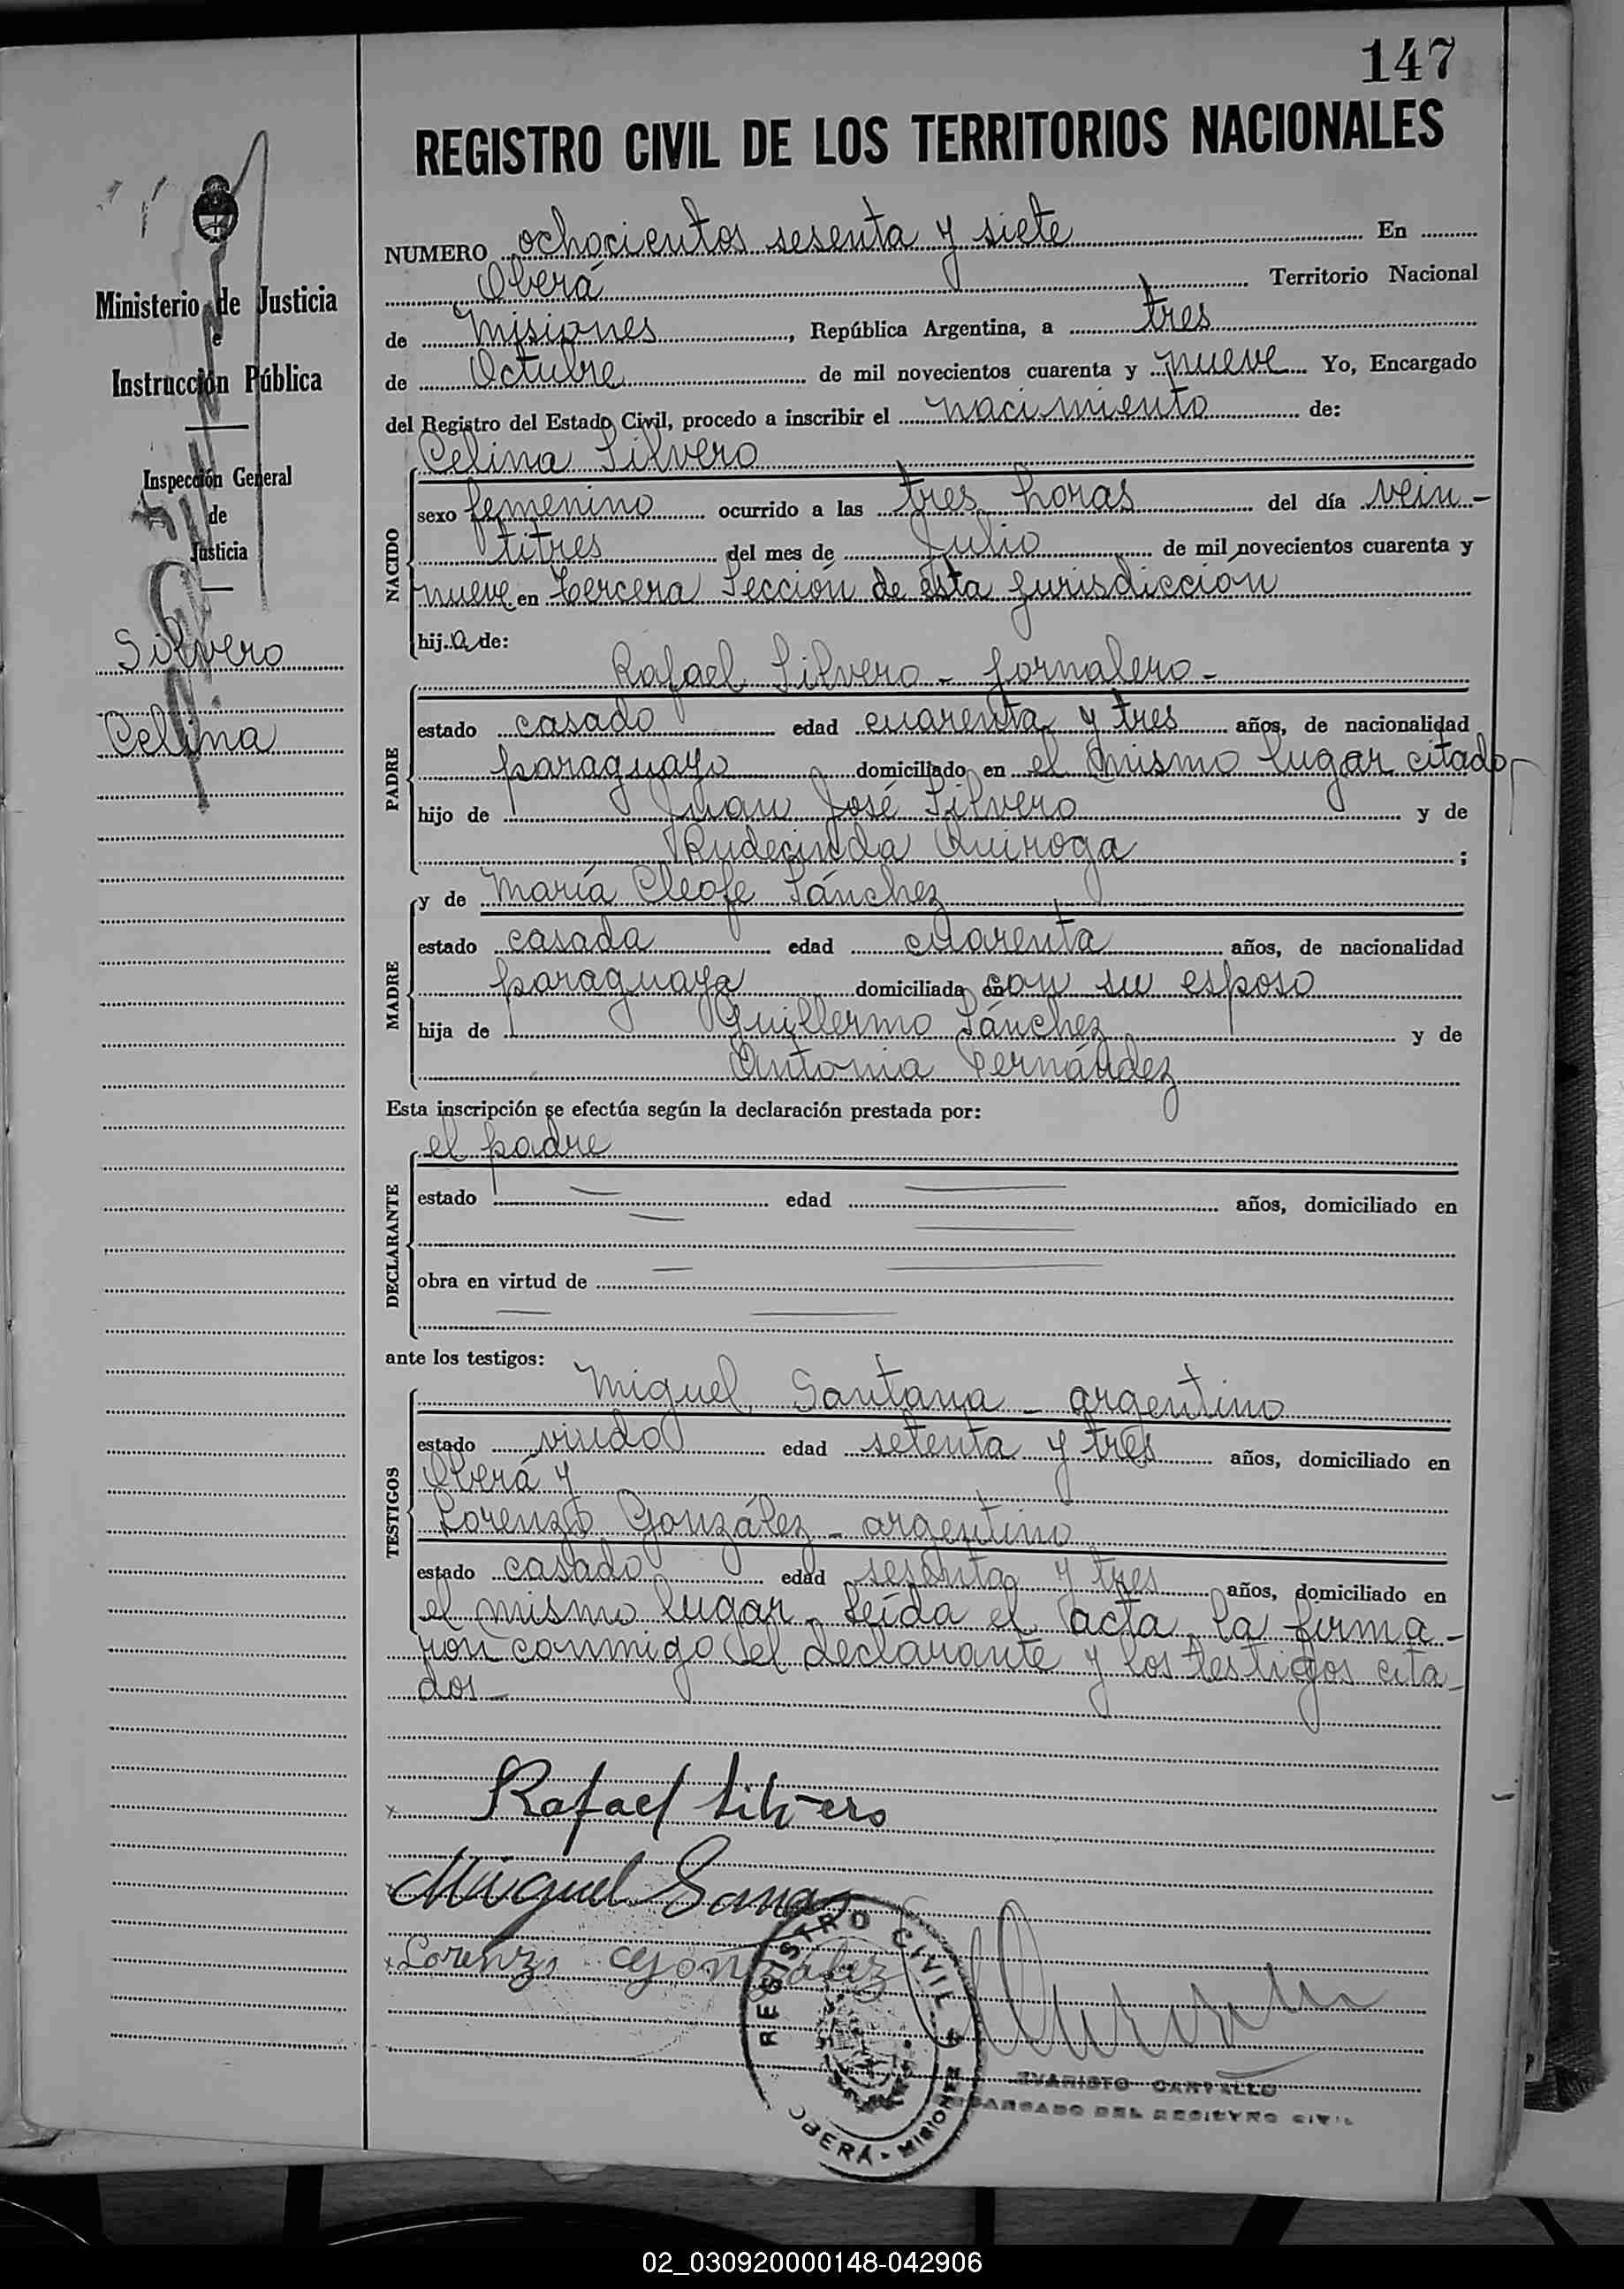 147
REGISTRO CIVIL DE LOS TERRITORIOS NACIONALES
Ministerio de Justicia
e
Instrucción Pública
Inspección General
de
Justicia
Silvero
Celina
NUMERO ochocientos sesenta y siete En
Oberá Territorio Nacional
de Misiones, República Argentina, a tres
de Octubre de mil novecientos cuarenta y nueve Yo, Encargado
del Registro del Estado Civil, procedo a inscribir el nacimiento de:
Celina Silvero
NACIDO
sexo femenino ocurrido a las tres horas del día vein-
titres del mes de Julio de mil novecientos cuarenta y
nueve en tercera Sección de esta jurisdicción
hij.a de:
Rafael Silvero - jornalero -
PADRE
estado casado edad cuarenta y tres años, de nacionalidad
paraguayo domiciliado en el mismo lugar citado
hijo de Juan José Silvero y de
Rudecinda Quiroga ;
MADRE
y de María Cleofe Sánchez
estado casada edad cuarenta años, de nacionalidad
paraguaya domiciliada con su esposo
hija de Guillermo Sánchez y de
Antonia Fernández
Esta inscripción se efectúa según la declaración prestada por:
el padre
DECLARANTE
estado edad años, domiciliado en
obra en virtud de
ante los testigos:
Miguel Santana - argentino
TESTIGOS
estado viudo edad setenta y tres años, domiciliado en
Oberá y
Lorenzo González - argentino
estado casado edad sesenta y tres años, domiciliado en
el mismo lugar. Leída el acta, la firma-
ron conmigo el declarante y los testigos cita-
dos-
x Rafael Silvero
Miguel
x Lorenzo Gonzalez
REGISTRO CIVIL
OBERÁ - MISIONES
EVARISTO CARVALLO
ENCARGADO DEL REGISTRO CIVIL
02_030920000148-042906